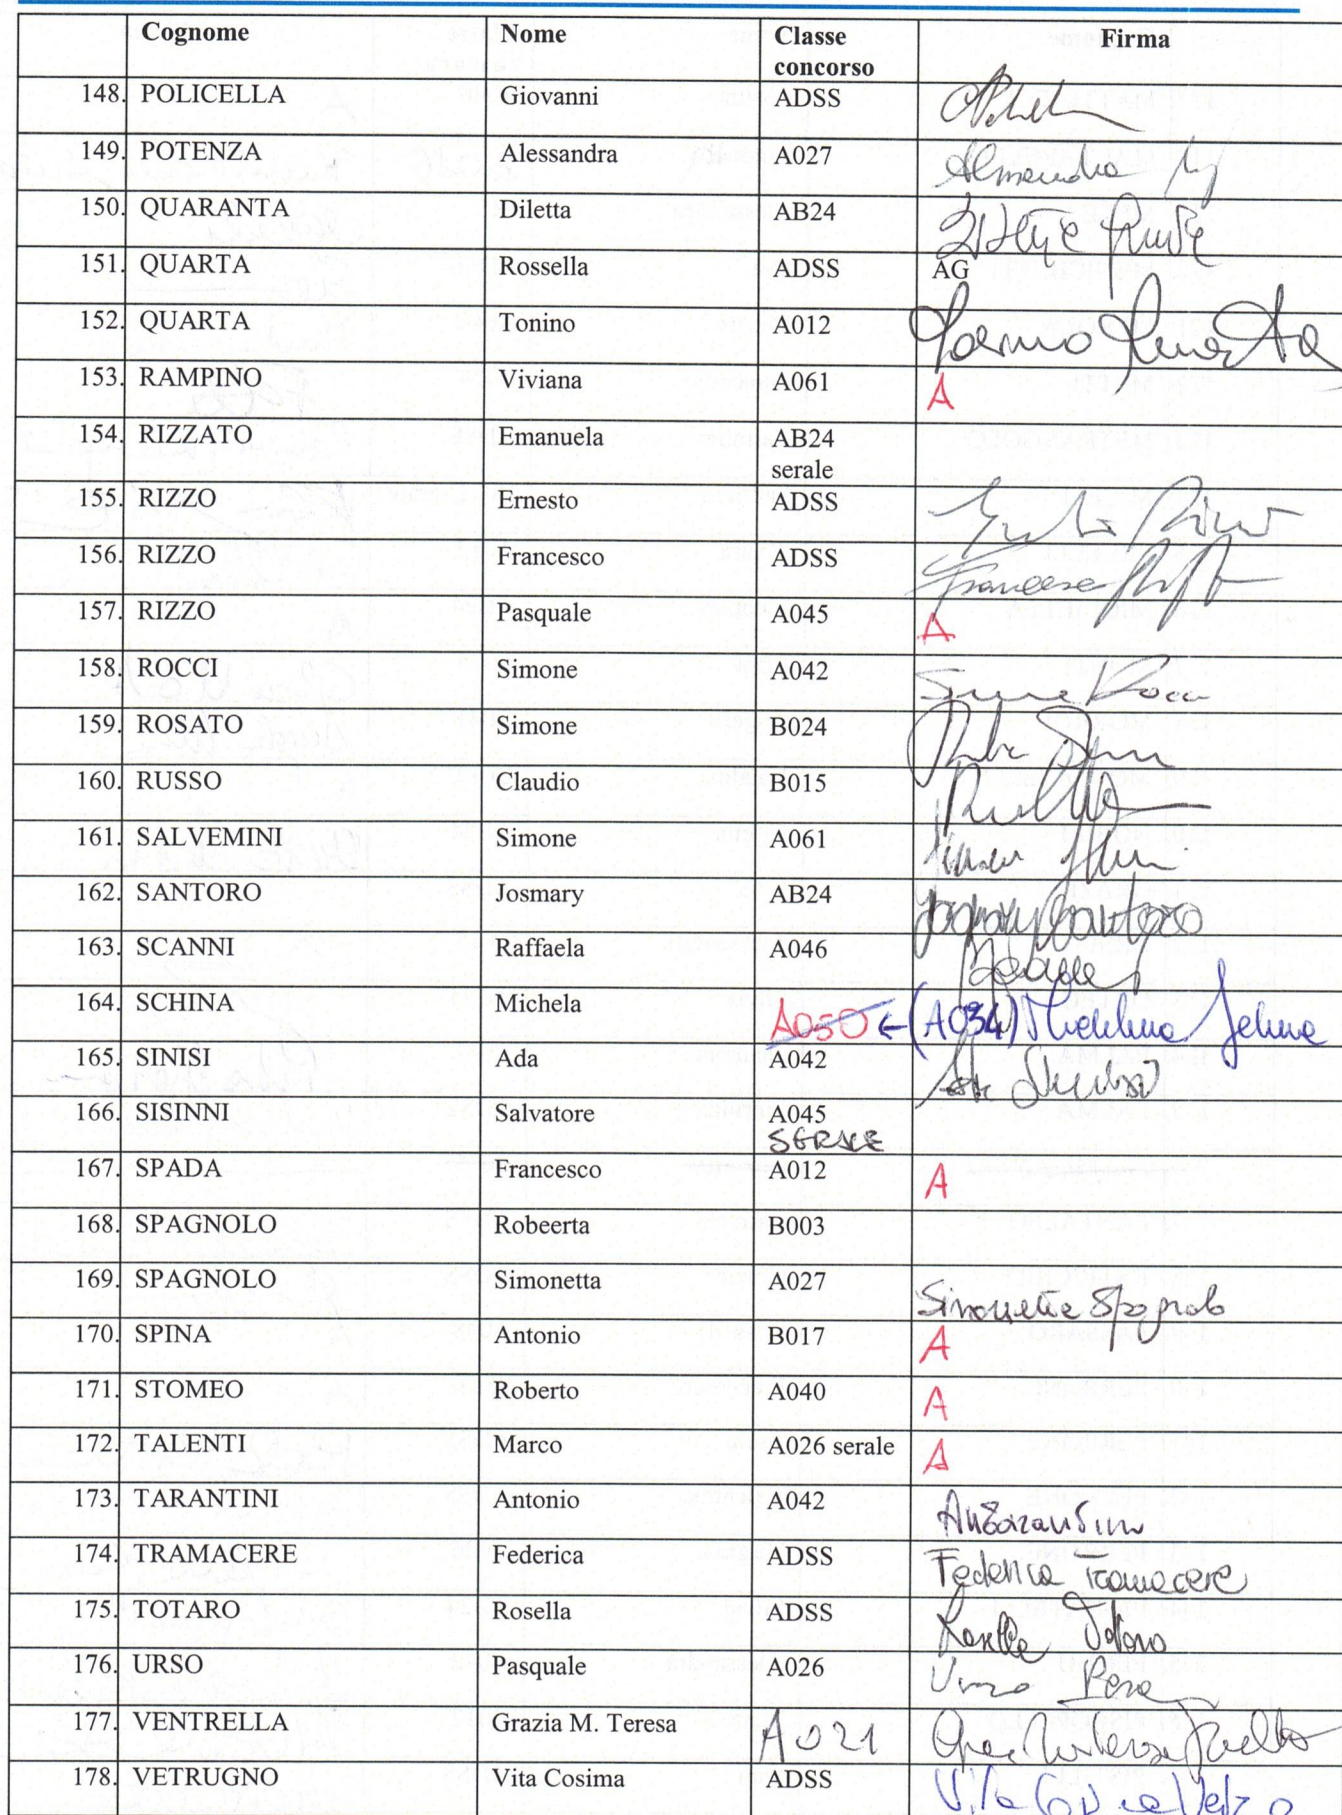 Cognome Nome Classe concorso Firma
148. POLICELLA Giovanni ADSS
149. POTENZA Alessandra A027
150. QUARANTA Diletta AB24
151. QUARTA Rossella ADSS AG
152. QUARTA Tonino A012 Quarta
153. RAMPINO Viviana A061 A
154. RIZZATO Emanuela AB24 serale
155. RIZZO Ernesto ADSS
156. RIZZO Francesco ADSS Francesco
157. RIZZO Pasquale A045 A
158. ROCCI Simone A042 Simone Rocci
159. ROSATO Simone B024
160. RUSSO Claudio B015
161. SALVEMINI Simone A061
162. SANTORO Josmary AB24 Josmary Santoro
163. SCANNI Raffaela A046
164. SCHINA Michela A050 ← (A034)
165. SINISI Ada A042
166. SISINNI Salvatore A045 SERALE
167. SPADA Francesco A012 A
168. SPAGNOLO Robeerta B003
169. SPAGNOLO Simonetta A027 Simonetta Spagnolo
170. SPINA Antonio B017 A
171. STOMEO Roberto A040 A
172. TALENTI Marco A026 serale A
173. TARANTINI Antonio A042
174. TRAMACERE Federica ADSS Federica Tramacere
175. TOTARO Rosella ADSS Rosella Totaro
176. URSO Pasquale A026
177. VENTRELLA Grazia M. Teresa A021
178. VETRUGNO Vita Cosima ADSS Vita Cosima